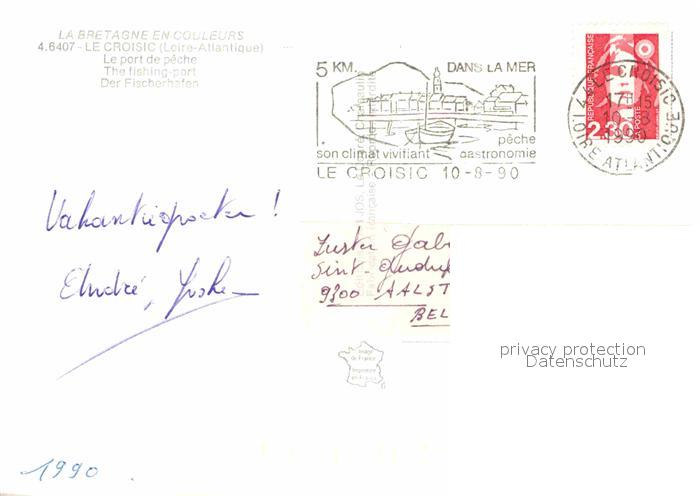 LA BRETAGNE EN COULEURS
4.6407 - LE CROISIC (Loire-Atlantique)
Le port de pêche
The fishing-port
Der Fischerhafen
5 KM. DANS LA MER
pêche
son climat vivifiant gastronomie
LE CROISIC 10-8-90
REPUBLIQUE FRANÇAISE
LA POSTE
2,30
44 LE CROISIC
17H15
10-8
1990
LOIRE ATLANTIQUE
Vakantiegroeten !
André,
Zuster Gab
Sint-
9300 AALST
BEL
Image
de France
Imprimée
en France
privacy protection
Datenschutz
1990